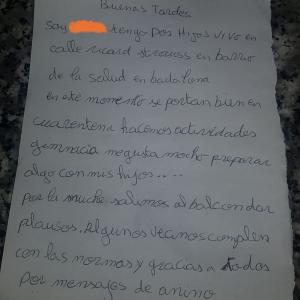 Buenas Tardes
Soy tengo Dos Hijos VIVO en
calle ricard strauss en barrio
de la salud en badalona
en este momento se portan bien en
cuarentena hacemos actividades
gimnacia me gusta mocho preparar
algo con mis hijos....
por la muche salimos al balcon dar
plausos, Algunos vecinos cumplen
con las normas y gracias a todos
por mensajes de animo